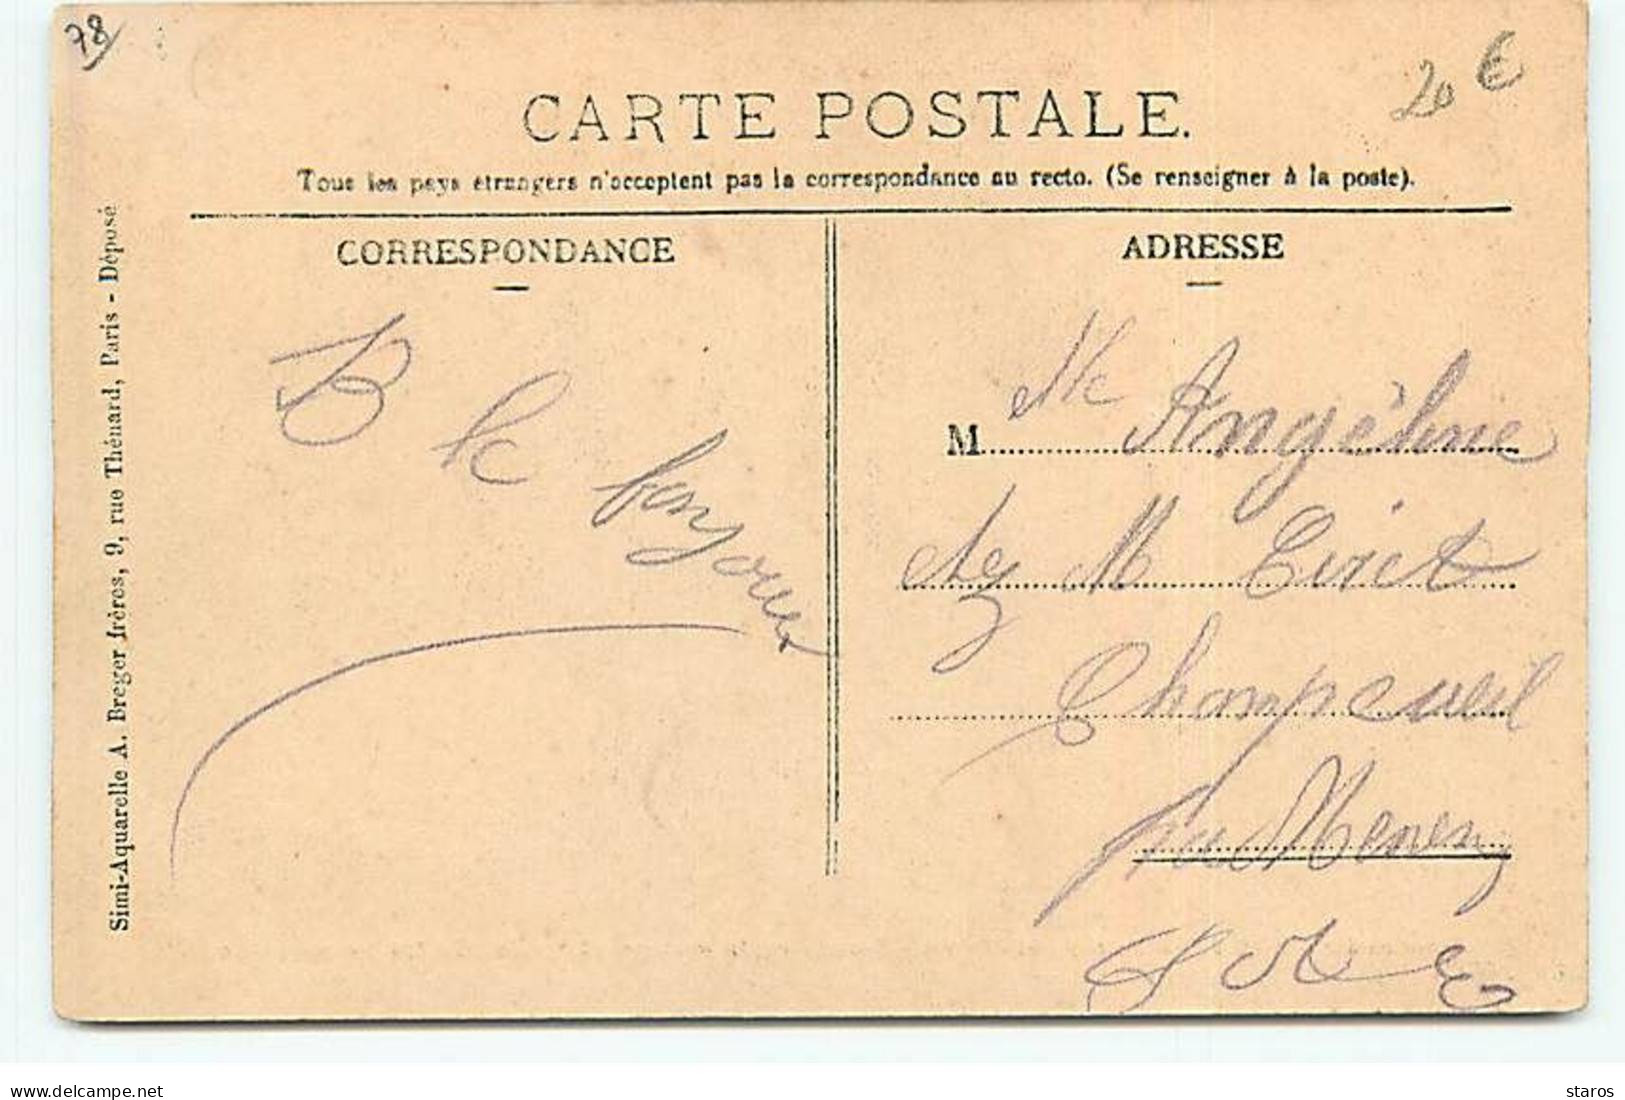 78
20 €
CARTE POSTALE.
Tous les pays étrangers n'acceptent pas la correspondance au recto. (Se renseigner à la poste).
CORRESPONDANCE
ADRESSE
B le bonjour
M Mlle Angèline
chez M
Champcueil
par Menecy
S et O
Simi-Aquarelle A. Breger frères, 9, rue Thénard, Paris - Déposé
https://www.delcampe.net
staros